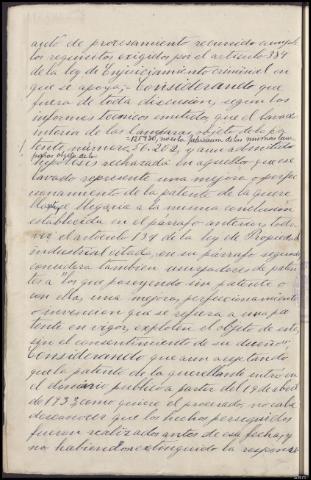 auto de procesamiento recurrido cumple
los requisitos exigidos por el articulo 384
de la ley de Enjuiciamiento criminal en
que se apoya; Considerando que
fuera de toda discusion, segun los
informes tecnicos emitidos que el lavado
interior de las lamparas objeto de la pa
para la fabricacion de las mismas lam
tente, numero 96.202, y aun admitida
paras objeto de la
hipotesis rechazada en aquellos que ese
lavado represente una mejora o perfec
cionamiento de la patente de la quere
llante, se llegaria a la misma conclusión
establecida en el párrafo anterior, toda
vez el articulo 139 de la ley de Propiedad
industrial citada, en su párrafo segundo
considera tambien usurpadores de paten
tes a "los que poseyendo un patente o
con ella, una mejora, perfeccionamiento
o invencion que se refiera a una pa
tente en vigor, exploten el objeto de esta,
sin el consentimiento de su dueño";
Considerando que aun aceptando
que la patente de la querellante entró en
el dominio publico a partir del 19 de abril
de 1933 como quiere el procesado, no cabe
desconocer que los hechos perseguidos
fueron realizados antes de esa fecha, y
no habiendose extinguido la responsa